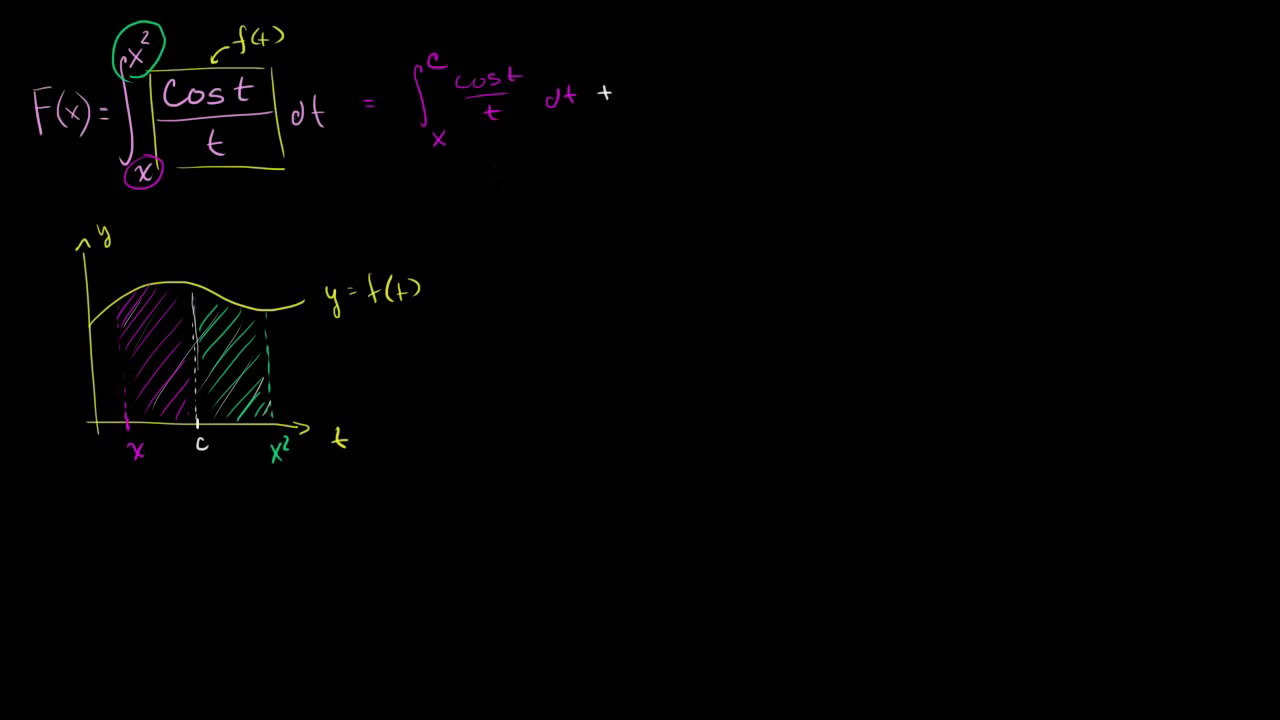 f(t)
F(x) = ∫ₓ^{x²} cos t / t dt = ∫ₓ^c cos t / t dt +
y
y = f(t)
x c x² t